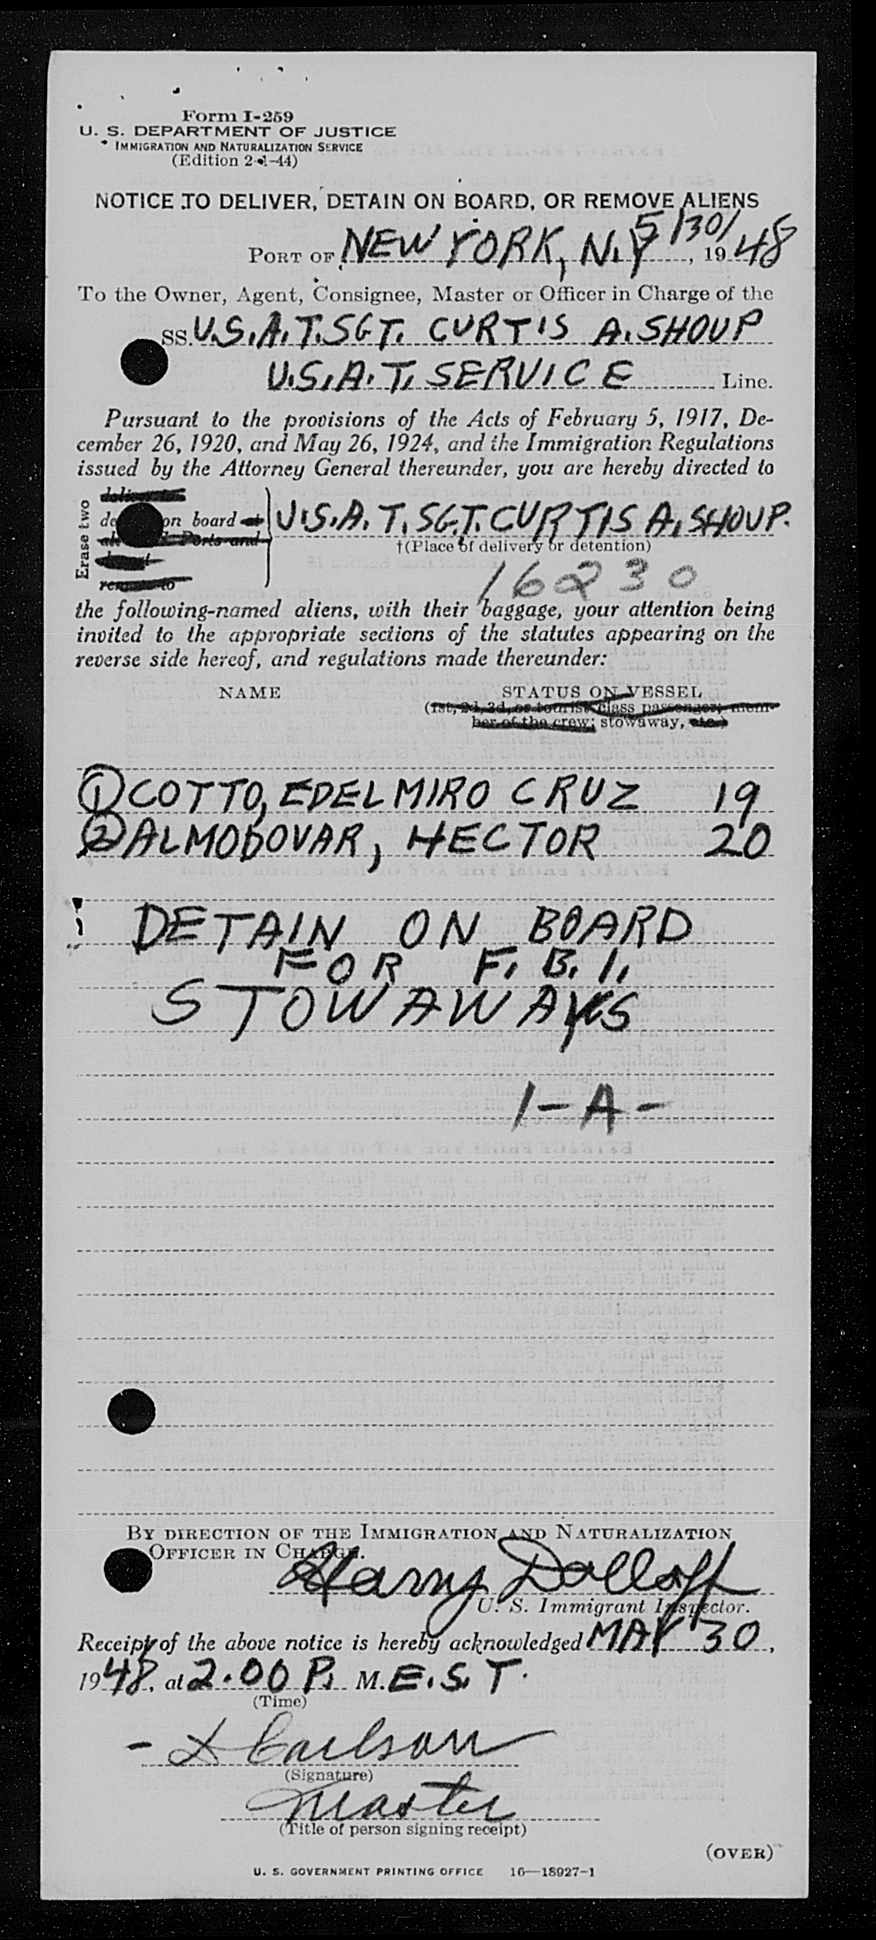 Form I-259
U. S. DEPARTMENT OF JUSTICE
IMMIGRATION AND NATURALIZATION SERVICE
(Edition 2-1-44)
NOTICE TO DELIVER, DETAIN ON BOARD, OR REMOVE ALIENS
PORT OF NEW YORK, N.Y 5/30/, 1948
To the Owner, Agent, Consignee, Master or Officer in Charge of the
SS. U.S.A.T. SGT. CURTIS A. SHOUP
U.S.A.T. SERVICE Line.
Pursuant to the provisions of the Acts of February 5, 1917, De-
cember 26, 1920, and May 26, 1924, and the Immigration Regulations
issued by the Attorney General thereunder, you are hereby directed to
Erase two
deliver to
on board at U.S.A.T. SGT. CURTIS A. SHOUP.
Ports and
†(Place of delivery or detention)
remove to
16230
the following-named aliens, with their baggage, your attention being
invited to the appropriate sections of the statutes appearing on the
reverse side hereof, and regulations made thereunder:
NAME STATUS ON VESSEL
(1st, 2d, 3d, or tourist class passenger; mem-
ber of the crew; stowaway, etc.)
① COTTO, EDELMIRO CRUZ 19
② ALMODOVAR, HECTOR 20
DETAIN ON BOARD
FOR F. B. I.
STOWAWAYS
1-A-
BY DIRECTION OF THE IMMIGRATION AND NATURALIZATION
OFFICER IN CHARGE.
Harry Dolloff
U. S. Immigrant Inspector.
Receipt of the above notice is hereby acknowledged MAY 30,
1948, at 2.00 P. M. E.S.T.
(Time)
Carlson
(Signature)
Master
(Title of person signing receipt)
(OVER)
U. S. GOVERNMENT PRINTING OFFICE 16—18927-1